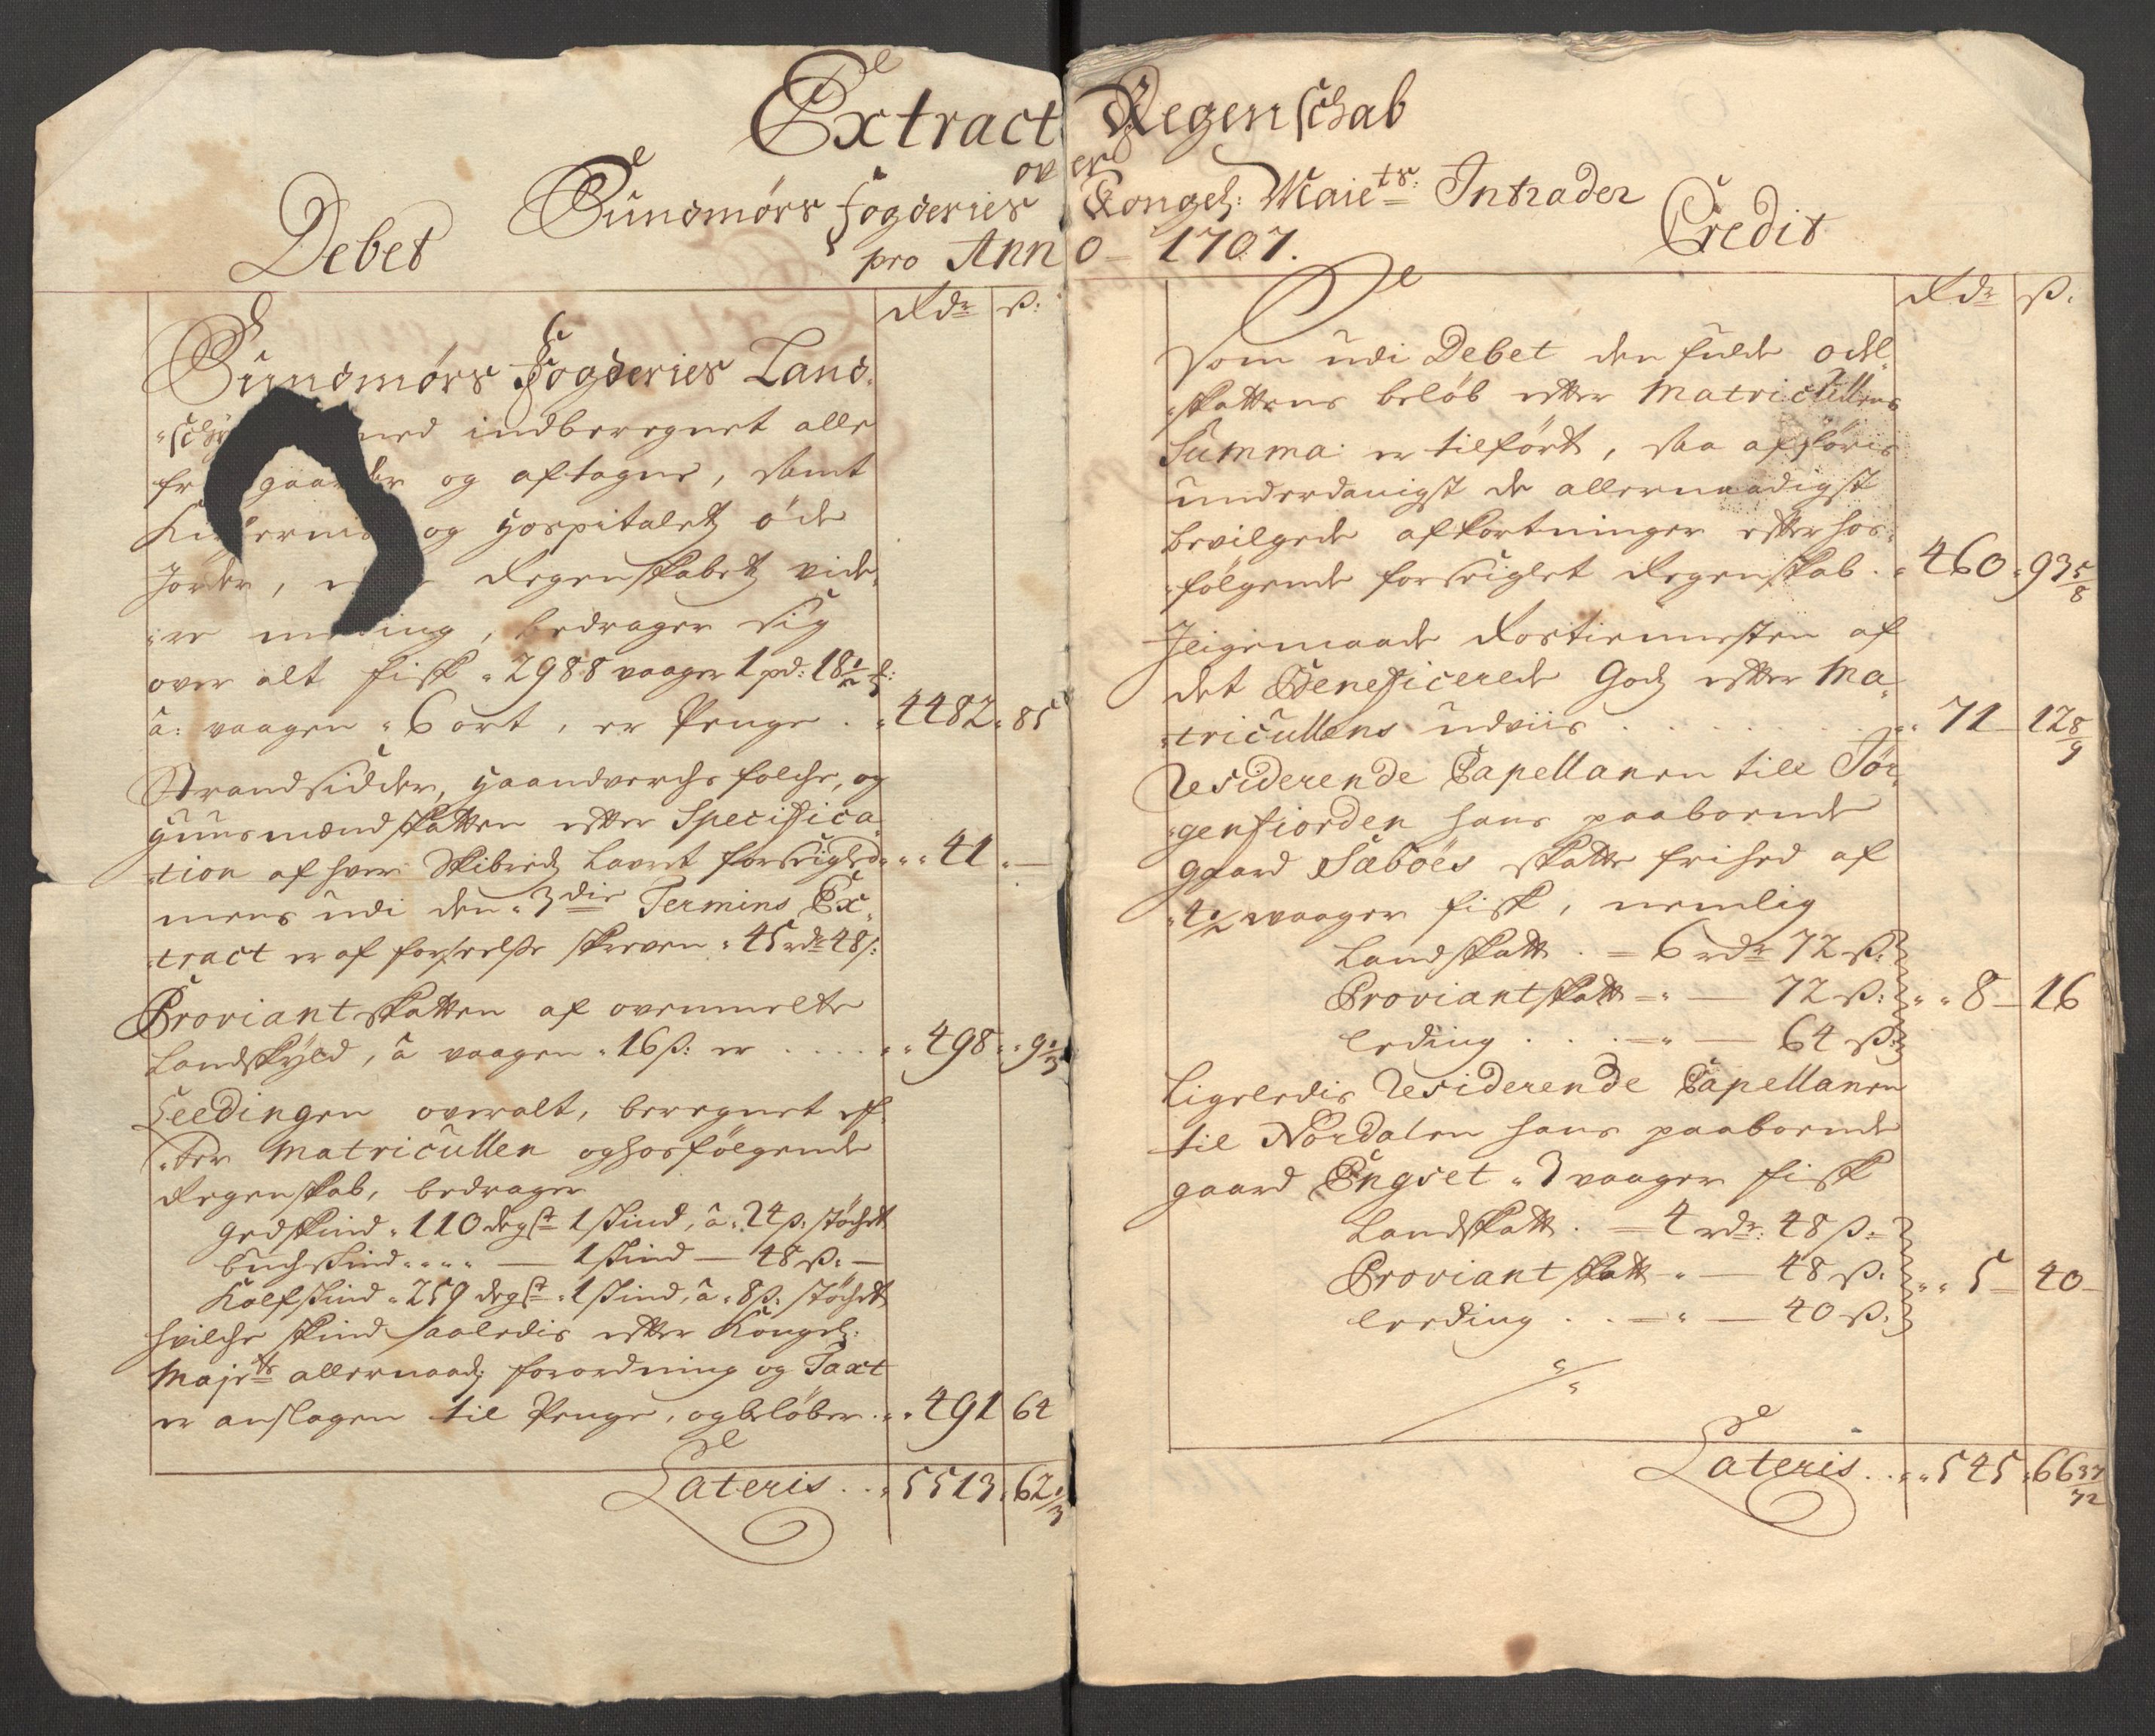 Extract Regenschab
over
Sundmørs Fogderies Kongel: Maiets: Intrader
Debet pro Anno 1707. Credit
Rdr ß:
Sundmørs Fogderies Land-
-schÿ ned indberegnet alle
fr gaarder og aftagne, samt
og Hospitalets öde
Jorder, Regenskabetz vide-
-re m ing, bedrager sig
over alt fisk 2988 vaager 1 pd: 18 1/2 ℔:
â: vaagen 6 ort, er Penge . 4482 85
Strandsidder, Haandverchs folche, og
Huusmændskatten efter Specifica-
-tion af hver Skibredz Laurt forseigled 41 —
mens udi den 3die Termins Ex-
-tract er af forseelse skreven 45 rdr 48 ß:
Proviantskatten af ovenmelte
Landskÿld, â vaagen 16 ß: er .... 498 9 1/3
Leedingen overalt, beregnet ef-
-ter Matricullen oghosfölgende
Regenskab, bedrager
Gedskind 110 degr 1 skind, â 24 ß: stöchet
buchskind — 1 skind — 48 ß: —
Kalfskind 259 degr 1 skind, â 8 ß: stöchet
hvilche skind saaledis efter Kongel:
Majets allernaad: forordning og Taxt
er anslagen til Penge, ogbelöber .. 491 64
Lateris .. 5513 62 1/3
Rdr ß:
Som udi Debet den fulde odel-
-skattens belöb efter Matricullens
Summa er tilfört, saa afföris
underdanigst de allernaadigst
bevilgede afkortninger efter hos-
-fölgende forseiglet Regenskab . 460 93 5/8
Jligemaade Rostienesten af
det Beneficerede Godz efter Ma-
-tricullens udviis ....... 71 12 8/9
Residerende Capellanen till Jör-
-genfiorden hans paaboende
gaard Sæböes skatte frihed af
4 1/2 vaager fisk, nemlig
Landskatt . 6 rdr 72 ß:
Proviantskatt — 72 ß: 8 16
Leding ... — 64 ß:
Ligeledis Residerende Capellanen
til Nordalen hans paaboende
gaard Engset 3 vaager fisk
Landskatt . 4 rdr: 48 ß:
Proviantskatt — 48 ß: 5 40
Leeding .. — 40 ß:
Lateris ... 545 66 37/72